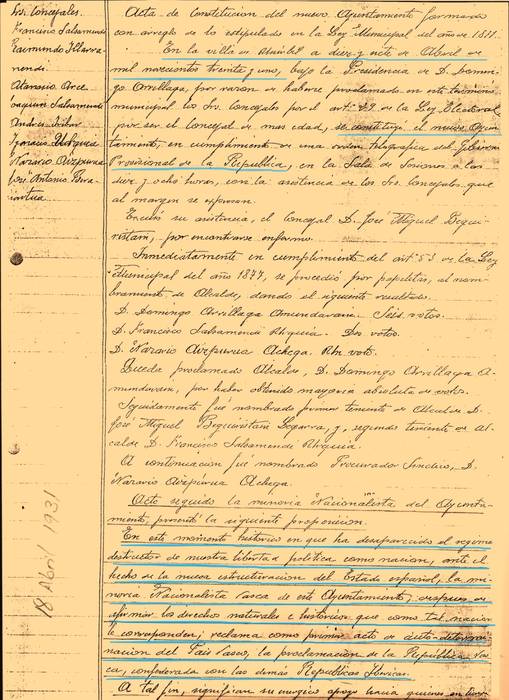 Srs. Concejales.
Francisco Salsamendi
Raimundo Illarra-
mendi
Atanasio Arce
Joaquin Salsamendi
Andres Iribar
Ignacio
Nazario Aizpurua
José Antonio Bera-
18 Abril 1931
Acta de Constitucion del nuevo Ayuntamiento formado
con arreglo de lo estipulado en la Ley Municipal del año de 1877.
En la villa de a diez y siete de Abril de
mil novecientos treinta y uno, bajo la Presidencia de D. Domin-
go Arrillaga, por razon de haberse proclamado en este termino
municipal los Srs. Concejales por el artº 29 de la Ley Electoral
por ser el Concejal de mas edad, se constituyó el nuevo Ayun-
tamiento, en cumplimiento de una orden telegrafica del Gobierno
Provisional de la Republica, en la Sala de Sesiones a las
diez y ocho horas, con la asistencia de los Srs. Concejales que
al margen se expresan.
Excusó su asistencia, el concejal D. José Miguel Begui-
ristain, por encontrarse enfermo.
Inmediatamente en cumplimiento del artº 53 de la Ley
Municipal del año 1877, se procedió por papeletas, al nom-
bramiento de Alcalde, dando el siguiente resultado.
D. Domingo Arrillaga Amundarain. Seis votos.
D. Francisco Salsamendi Urquia. Dos votos.
D. Nazario Aizpurua Achega. Un voto.
Queda proclamado Alcalde, D. Domingo Arrillaga A-
mundarain, por haber obtenido mayoria absoluta de votos.
Seguidamente fué nombrado primer teniente de Alcalde D.
José Miguel Beguiristain Legarra, y, segundo teniente de Al-
calde D. Francisco Salsamendi Urquia.
A continuacion fué nombrado Procurador Sindico, D.
Nazario Aizpurua Achega.
Acto seguido la minoria "Nacionalista" del Ayunta-
miento, presentó la siguiente proposicion.
En este momento historico en que ha desaparecido el regimen
destructor de nuestra libertad politica como nacion, ante el
hecho de la nueva estructuracion del Estado español, la mi-
noria Nacionalista Vasca de este Ayuntamiento, despues de
afirmar los derechos naturales e historicos que como tal nacion
le corresponden, reclama como primer acto de auto-determi-
nacion del Pais Vasco, la proclamacion de la Republica Vas-
ca, confederada con las demás Republicas Ibericas.
A tal fin, significan su energico apoyo hacia quienes en